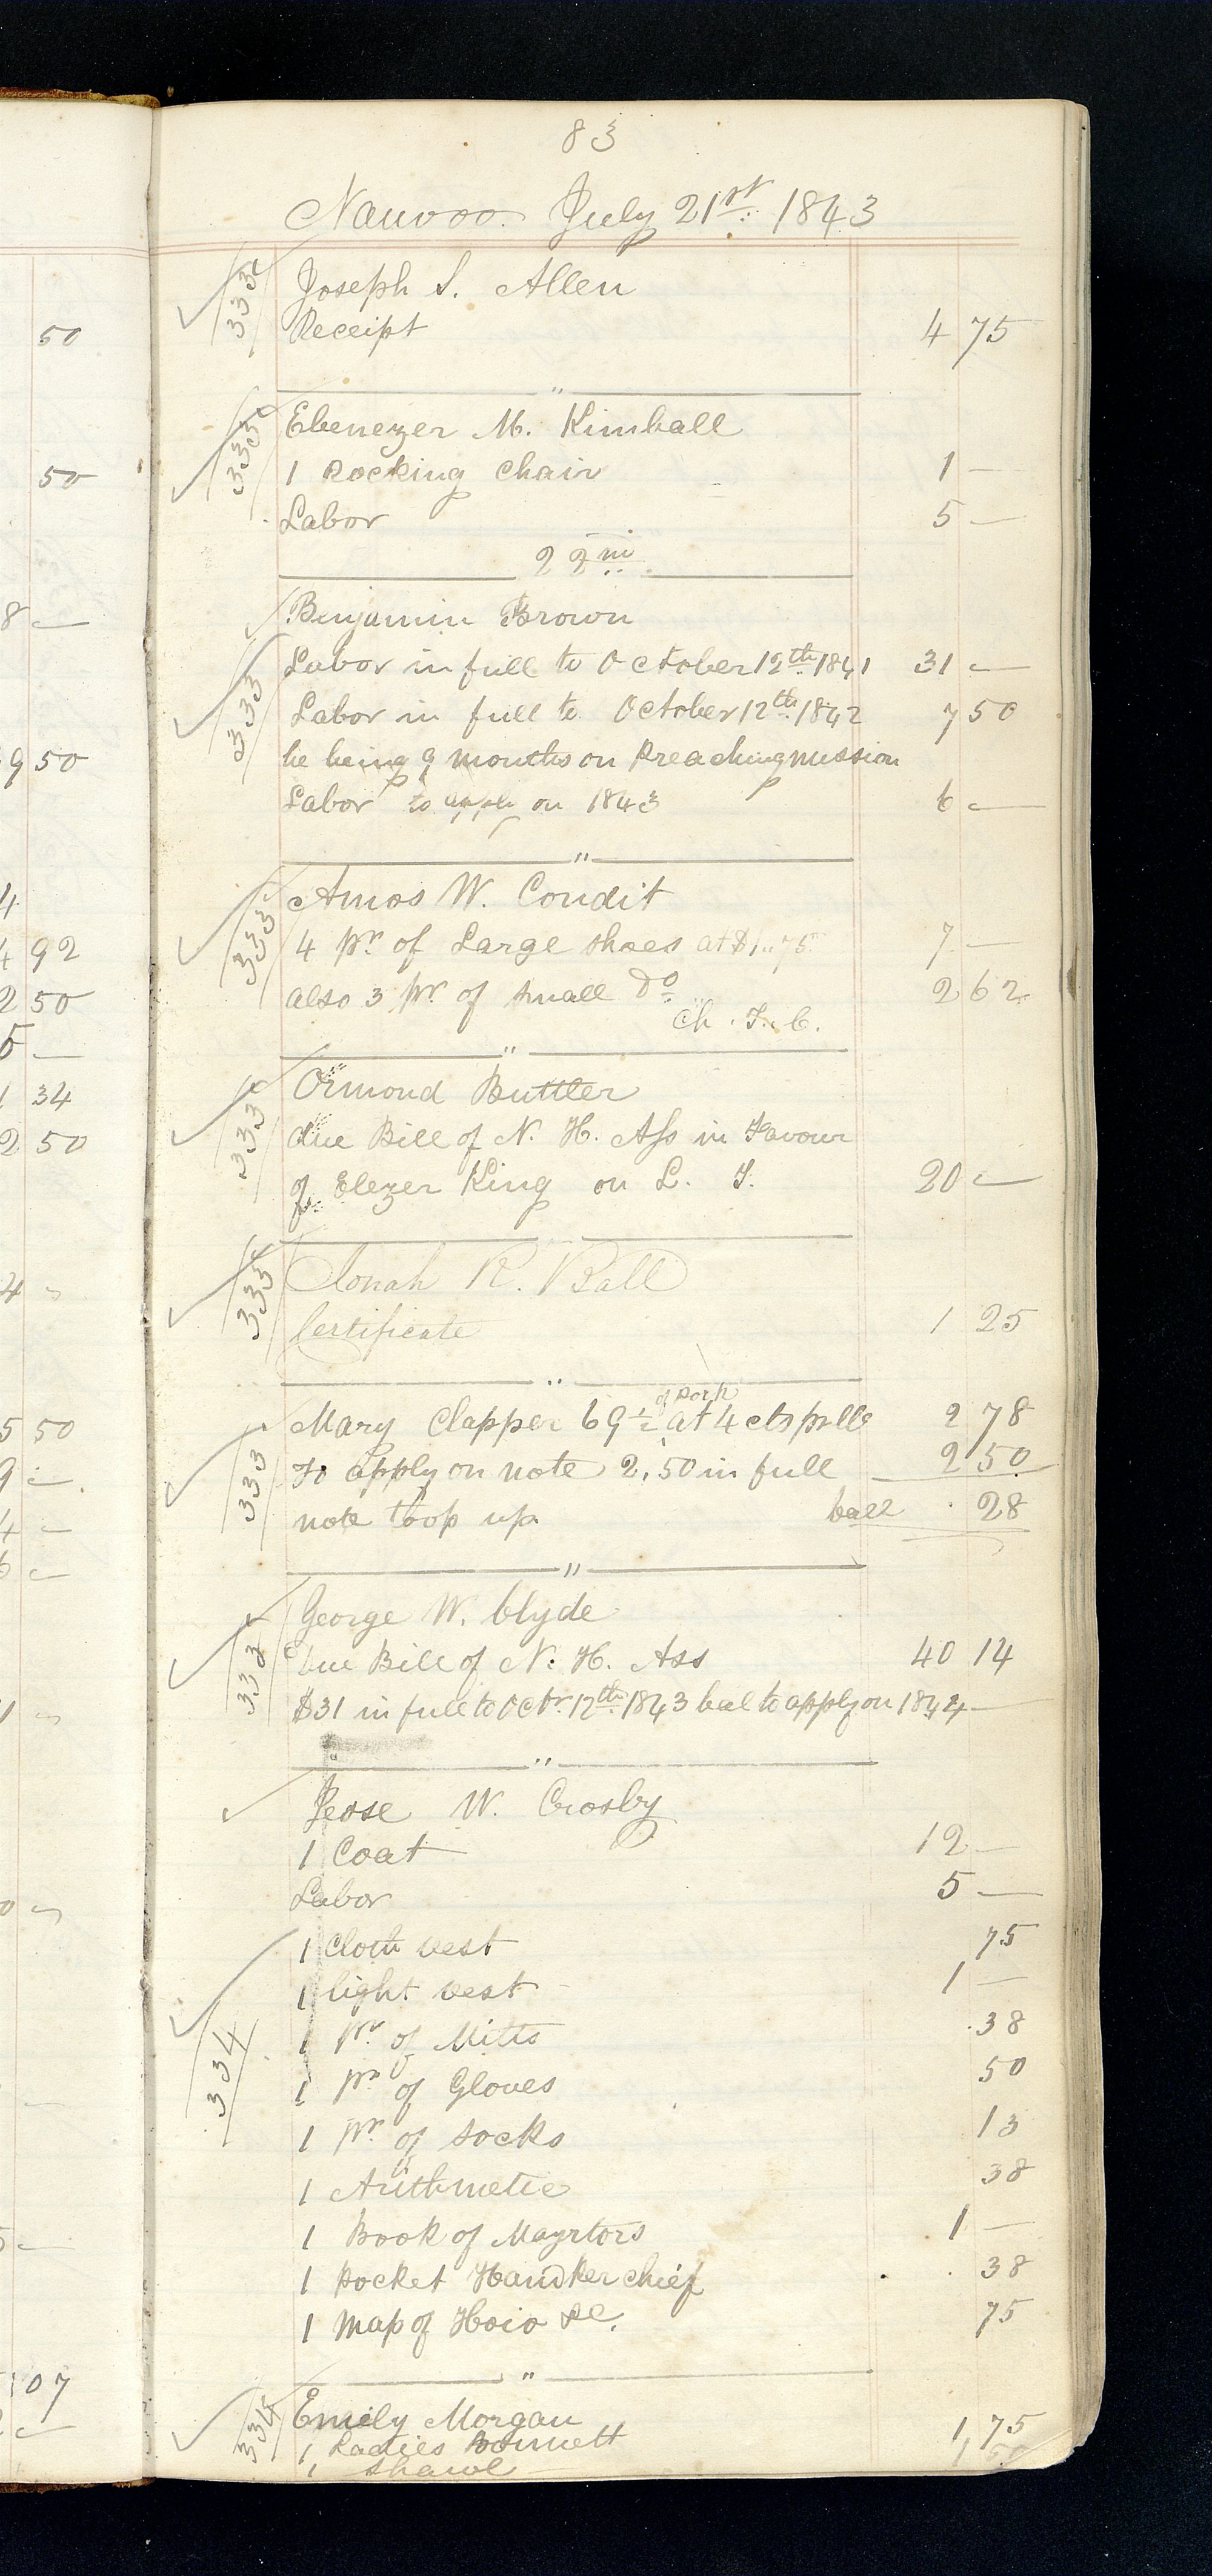 83
Nauvoo July 21st 1843
333
Joseph S. Allen
Receipt 4 75
"
333
Ebenezer M. Kimball
1 Rocking Chair 1 —
Labor 5 —
22nd
Benjamin Brown
333
Labor in full to October 12th 1841 31 —
Labor in full to October 12th 1842 7 50
he being 9 months on Preaching mission
Labor to apply on 1843 6 —
"
333
Amos W. Condit
4 pr of Large shoes at $1.75 7 —
also 3 pr of small Do 2 62
Ch. T. C.
"
333
Ormond Buttler
due Bill of N. H. Ass in Favour
of Elezer King on L. T. 20 —
333
Jonah R. Ball
Certificate 1 25
"
of Pork
Mary Clapper 69 1/2 at 4 cts pr lb 2 78
333
To apply on note 2,50 in full 2 50
note up ball 28
"
333
George W. Clyde
due Bill of N. H. Ass 40 14
$31 in full to Octr 12th 1843 bal to apply on 1844 —
"
Jesse W. Crosby
1 Coat 12 —
Labor 5 —
1 Cloth vest 75
1 light vest 1 —
334
1 pr of Mitts 38
1 pr of Gloves 50
1 pr of socks 13
1 Arithmetic 38
1 Book of Mayrtors 1 —
1 Pocket Handkerchief 38
1 Map of Hoio &c. 75
"
334
Emily Morgan
1 Ladies Bonnett 1 75
1 Shawl 1 50
50
50
8 —
9 50
4
4 92
2 50
5 —
1 34
2 50
4
5 50
9 —
4 —
6 —
07